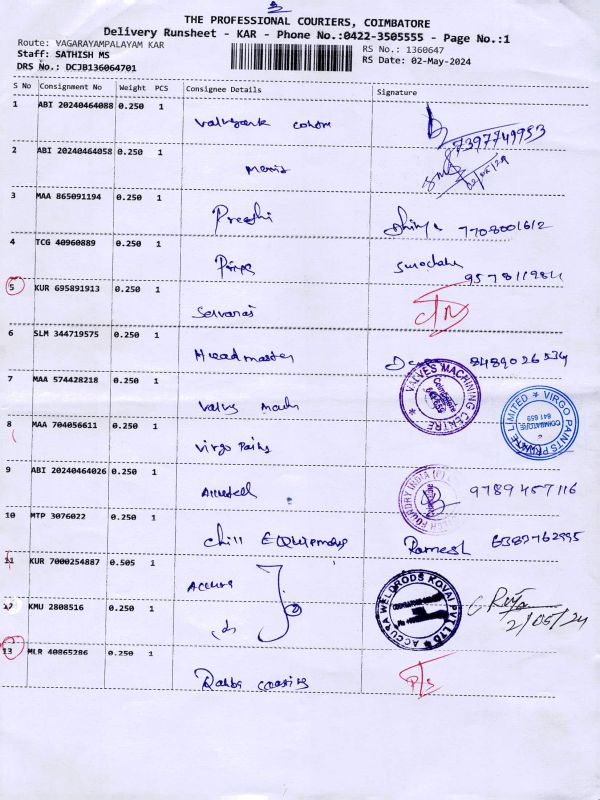 THE PROFESSIONAL COURIERS, COIMBATORE
Delivery Runsheet - KAR - Phone No.:0422-3505555 - Page No.:1
Route: YAGARAYAMPALAYAM KAR
RS No.: 1360647
Staff: SATHISH MS
RS Date: 02-May-2024
DRS No.: DCJB136064701
S No Consignment No Weight PCS Consignee Details Signature
1 ABI 20240464088 0.250 1
7397749953
2 ABI 20240464058 0.250 1
02/05/24
3 MAA 865091194 0.250 1 Preethi 7708001612
4 TCG 40960889 0.250 1 Priya
5 KUR 695891913 0.250 1 Selvaraj
6 SLM 344719575 0.250 1 Headmaster 8489026534
7 MAA 574428218 0.250 1
VALVES MACHINING CENTRE
8 MAA 704056611 0.250 1 Virgo Paints
VIRGO PAINTS PRIVATE LIMITED
COIMBATORE
641 659
9 ABI 20240464026 0.250 1 9789457116
FOUNDRY INDIA
10 MTP 3076022 0.250 1 Chill Equipments Ramesh 6387762995
11 KUR 7000254887 0.505 1 Accura
ACCURA WELDRODS KOVAI PVT LTD
12 KMU 2808516 0.250 1
2/05/24
13 MLR 40865286 0.250 1